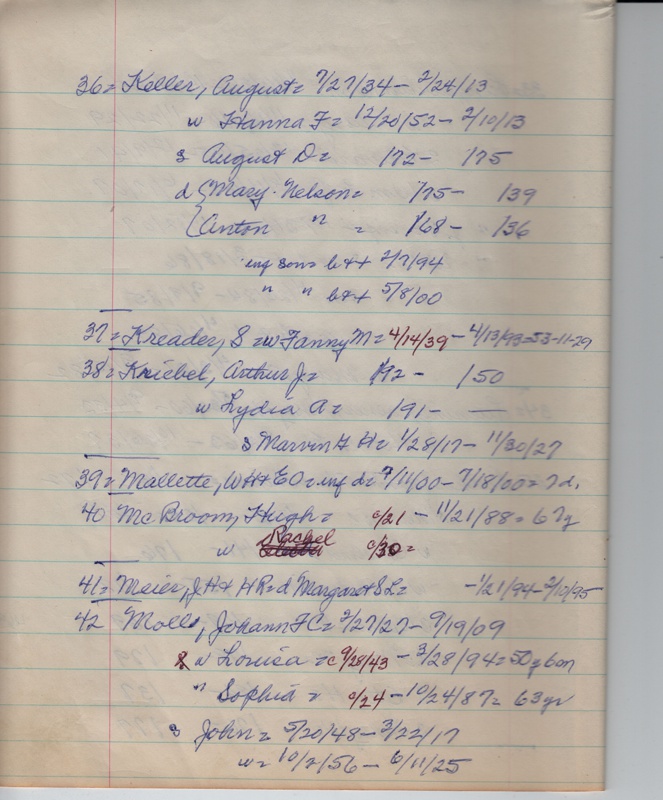 36= Keller, August= 7/27/34 - 2/24/13
w Hanna F= 12/20/52 - 2/10/13
s August D= /72 - /75
d {Mary Nelson= /75 - /39
{Anton " = /68 - /36
inf sons b&d 2/7/94
" " b&d 5/8/00
37= Kreader, S = w Fanny M= 4/14/39 - 4/13/93=53-11-29
38= Kniebel, Arthur J= /92 - /50
w Lydia A= /91 - —
s Marvin H= 1/28/17 - 11/30/27
39= Mallette, WH & EO= inf d= 7/11/00 - 7/18/00= 7d.
40 McBroom, Hugh= c/21 - 11/21/88= 67y
w Rachel c/30=
41= Meier, JH & HR= d Margaret SL= - 1/21/94 - 2/10/95
42 Moll, Johann FC= 2/27/27 - 9/19/09
w Louisa = c 9/28/43 - 3/28/94= 50y 6m
" Sophia = c/24 - 10/24/87= 63yr
s John= 5/20/48 - 3/22/17
w= 10/2/56 - 6/11/25